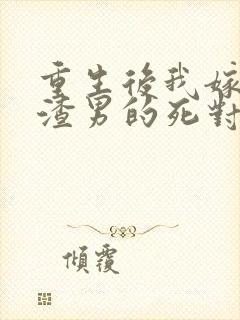 重生後我嫁
渣男的死對
傾覆